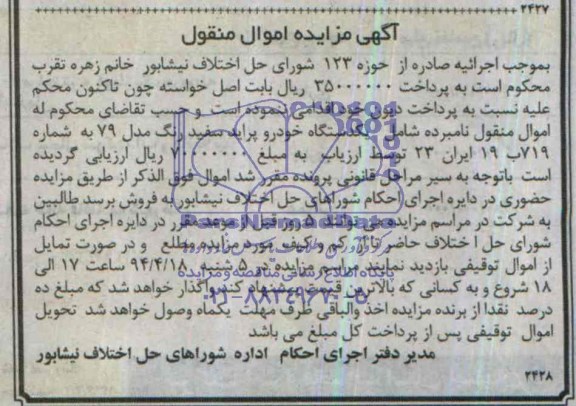 ۲۴۲۷
آگهی مزایده اموال منقول
بموجب اجرائیه صادره از حوزه ۱۲۳ شورای حل اختلاف نیشابور خانم زهره تقرب
محکوم است به پرداخت ۳۵۰۰۰۰۰۰ ریال بابت اصل خواسته چون تاکنون محکم
علیه نسبت به پرداخت دیون خود اقدامی ننموده است و حسب تقاضای محکوم له
اموال منقول نامبرده شامل یکدستگاه خودرو پراید سفید رنگ مدل ۷۹ به شماره
۷۱۹ب ۱۹ ایران ۲۳ توسط ارزیاب به مبلغ ریال ارزیابی گردیده
است باتوجه به سیر مراحل قانونی پرونده مقرر شد اموال فوق الذکر از طریق مزایده
حضوری در دایره اجرای احکام شوراهای حل اختلاف نیشابور به فروش برسد طالبین
به شرکت در مراسم مزایده می توانند ۵ روز قبل از موعد مقرر در دایره اجرای احکام
شورای حل ا ختلاف حاضر تا از کم و کیف مورد مزایده مطلع و در صورت تمایل
از اموال توقیفی بازدید نمایند مراسم مزایده در ۵ شنبه ۹۴/۴/۱۸ ساعت ۱۷ الی
۱۸ شروع و به کسانی که بالاترین قیمت پیشنهاد کند واگذار خواهد شد که مبلغ ده
درصد نقدا از برنده مزایده اخذ والباقی ظرف مهلت یکماه وصول خواهد شد تحویل
اموال توقیفی پس از پرداخت کل مبلغ می باشد
مدیر دفتر اجرای احکام اداره شوراهای حل اختلاف نیشابور
۲۴۲۸
ParsNamadData
پایگاه اطلاع رسانی مناقصه و مزایده
۰۲۱-۸۸۳۴۹۶۷۰-۵